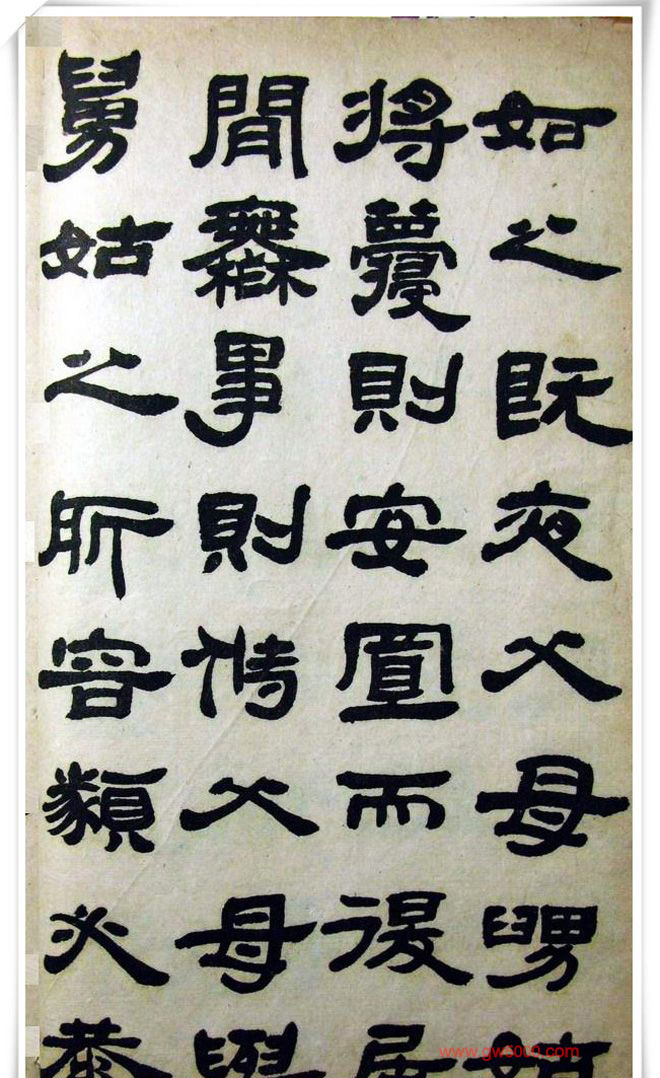 如之既夜父母舅姑
將寢則安置而退居
閒無事則侍父母
舅姑之所容貌必恭
www.gw5000.com